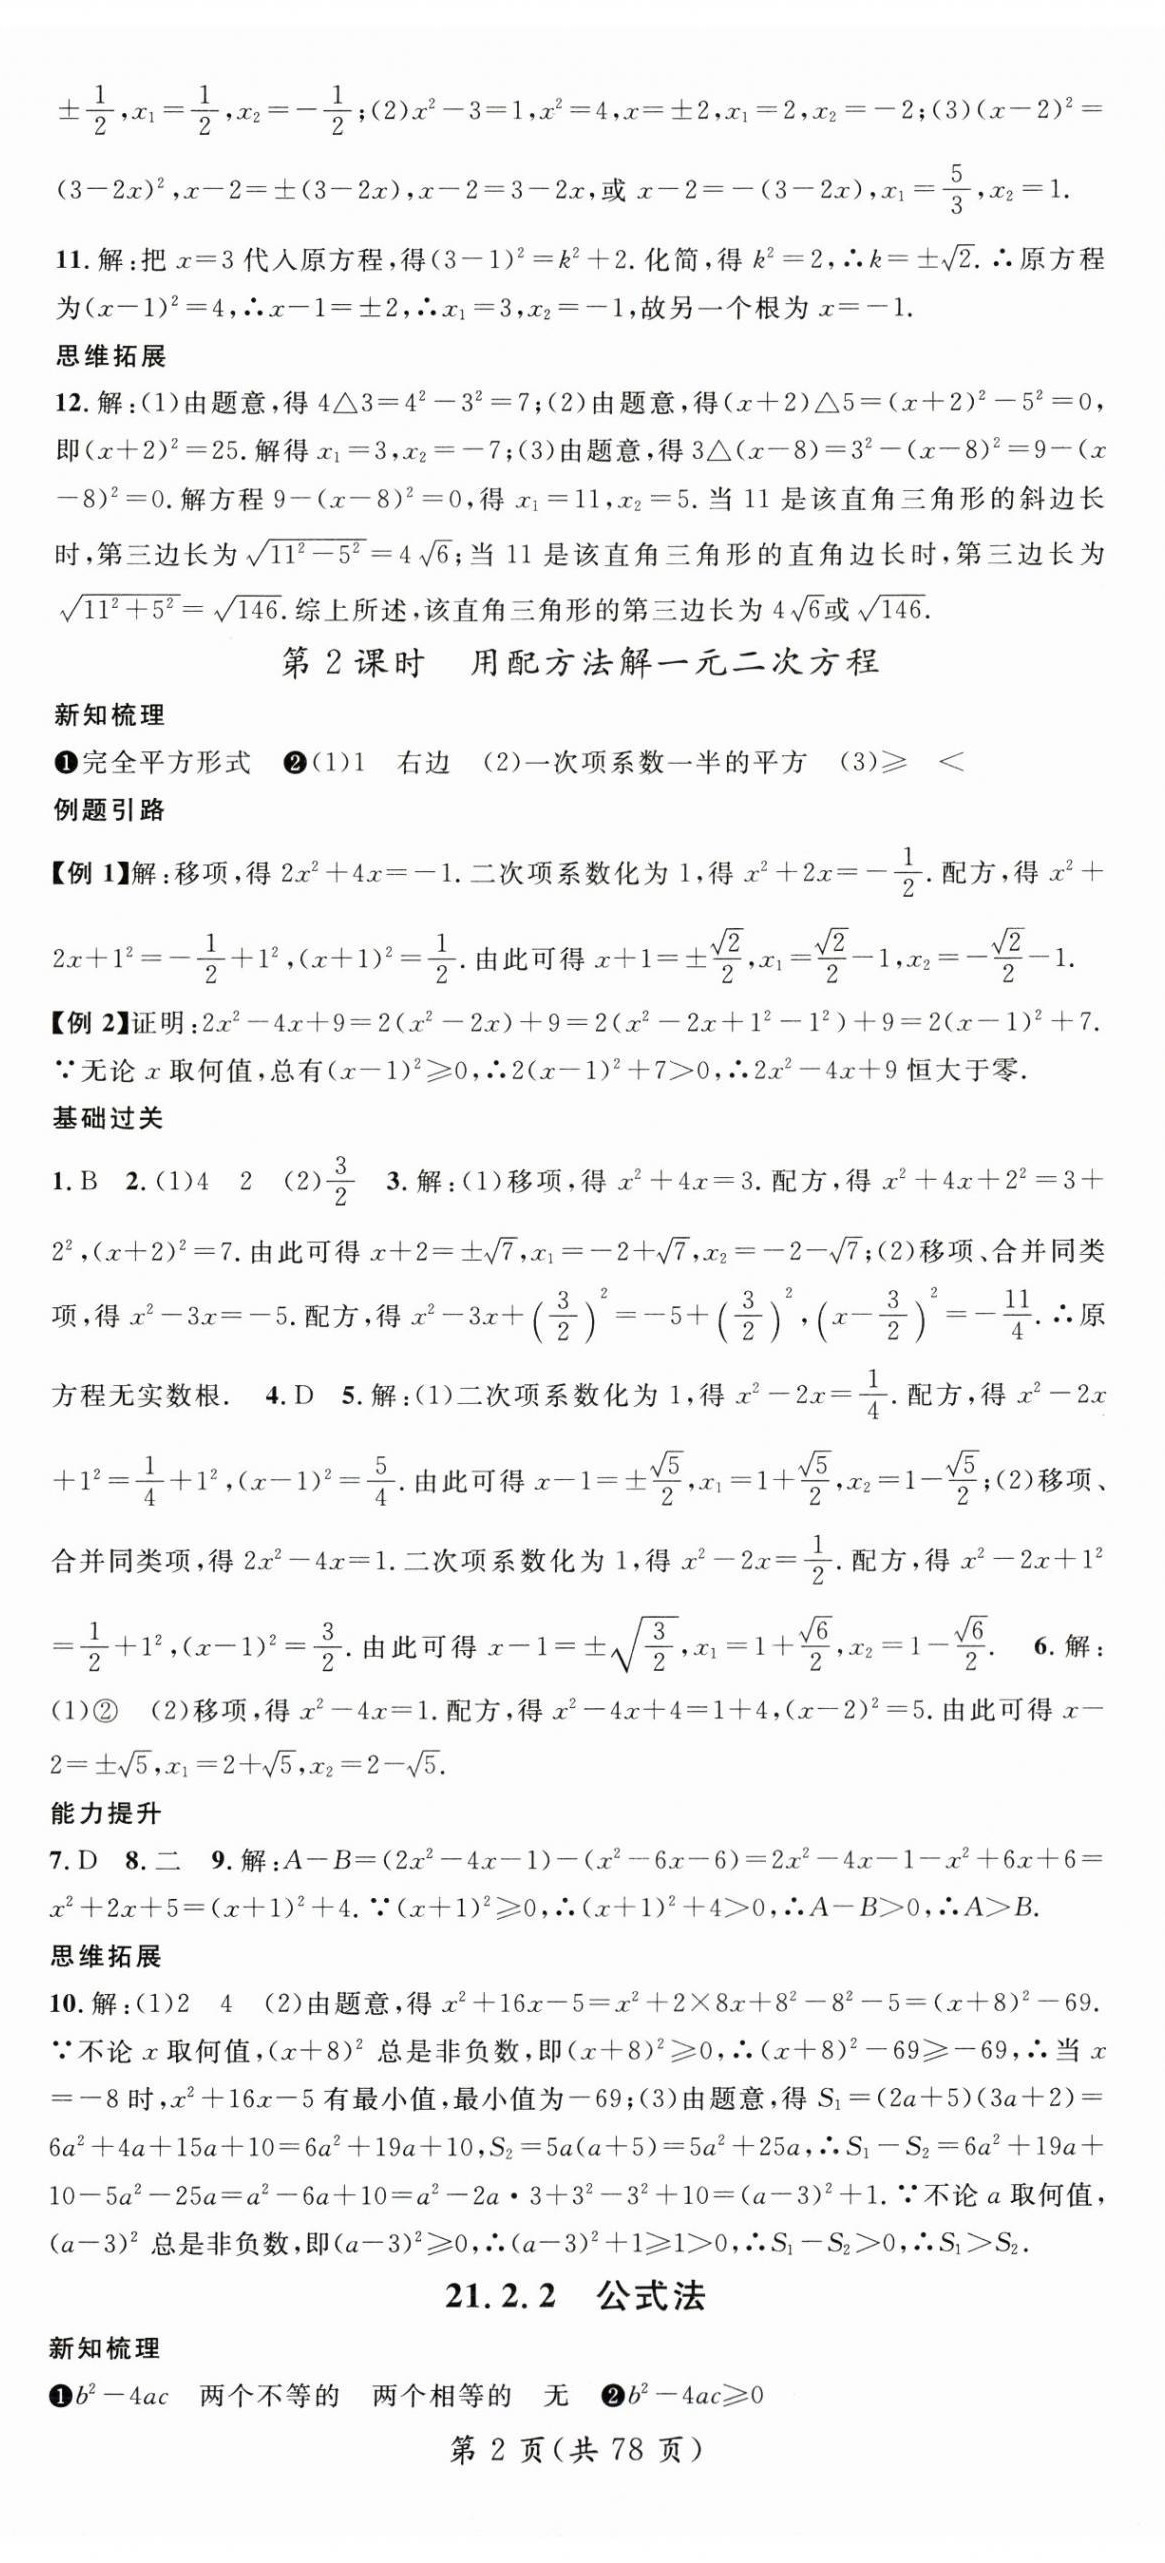 ±1/2,x₁=1/2,x₂=-1/2;(2)x²-3=1,x²=4,x=±2,x₁=2,x₂=-2;(3)(x-2)²=
(3-2x)²,x-2=±(3-2x),x-2=3-2x,或 x-2=-(3-2x),x₁=5/3,x₂=1.
11.解:把 x=3 代入原方程,得(3-1)²=k²+2.化简,得 k²=2,∴k=±√2.∴原方程
为(x-1)²=4,∴x-1=±2,∴x₁=3,x₂=-1,故另一个根为 x=-1.
思维拓展
12.解:(1)由题意,得 4△3=4²-3²=7;(2)由题意,得(x+2)△5=(x+2)²-5²=0,
即(x+2)²=25.解得 x₁=3,x₂=-7;(3)由题意,得 3△(x-8)=3²-(x-8)²=9-(x
-8)²=0.解方程 9-(x-8)²=0,得 x₁=11,x₂=5.当 11 是该直角三角形的斜边长
时,第三边长为√(11²-5²)=4√6;当 11 是该直角三角形的直角边长时,第三边长为
√(11²+5²)=√146.综上所述,该直角三角形的第三边长为 4√6或√146.
第 2 课时 用配方法解一元二次方程
新知梳理
❶完全平方形式 ❷(1)1 右边 (2)一次项系数一半的平方 (3)≥ <
例题引路
【例 1】解:移项,得 2x²+4x=-1.二次项系数化为 1,得 x²+2x=-1/2.配方,得 x²+
2x+1²=-1/2+1²,(x+1)²=1/2.由此可得 x+1=±√2/2,x₁=√2/2-1,x₂=-√2/2-1.
【例 2】证明:2x²-4x+9=2(x²-2x)+9=2(x²-2x+1²-1²)+9=2(x-1)²+7.
∵无论 x 取何值,总有(x-1)²≥0,∴2(x-1)²+7>0,∴2x²-4x+9 恒大于零.
基础过关
1.B 2.(1)4 2 (2)3/2 3.解:(1)移项,得 x²+4x=3.配方,得 x²+4x+2²=3+
2²,(x+2)²=7.由此可得 x+2=±√7,x₁=-2+√7,x₂=-2-√7;(2)移项、合并同类
项,得 x²-3x=-5.配方,得 x²-3x+(3/2)²=-5+(3/2)²,(x-3/2)²=-11/4.∴原
方程无实数根. 4.D 5.解:(1)二次项系数化为 1,得 x²-2x=1/4.配方,得 x²-2x
+1²=1/4+1²,(x-1)²=5/4.由此可得 x-1=±√5/2,x₁=1+√5/2,x₂=1-√5/2;(2)移项、
合并同类项,得 2x²-4x=1.二次项系数化为 1,得 x²-2x=1/2.配方,得 x²-2x+1²
=1/2+1²,(x-1)²=3/2.由此可得 x-1=±√(3/2),x₁=1+√6/2,x₂=1-√6/2. 6.解:
(1)② (2)移项,得 x²-4x=1.配方,得 x²-4x+4=1+4,(x-2)²=5.由此可得 x-
2=±√5,x₁=2+√5,x₂=2-√5.
能力提升
7.D 8.二 9.解:A-B=(2x²-4x-1)-(x²-6x-6)=2x²-4x-1-x²+6x+6=
x²+2x+5=(x+1)²+4.∵(x+1)²≥0,∴(x+1)²+4>0,∴A-B>0,∴A>B.
思维拓展
10.解:(1)2 4 (2)由题意,得 x²+16x-5=x²+2×8x+8²-8²-5=(x+8)²-69.
∵不论 x 取何值,(x+8)² 总是非负数,即(x+8)²≥0,∴(x+8)²-69≥-69,∴当 x
=-8 时,x²+16x-5 有最小值,最小值为-69;(3)由题意,得 S₁=(2a+5)(3a+2)=
6a²+4a+15a+10=6a²+19a+10,S₂=5a(a+5)=5a²+25a,∴S₁-S₂=6a²+19a+
10-5a²-25a=a²-6a+10=a²-2a·3+3²-3²+10=(a-3)²+1.∵不论 a 取何值,
(a-3)² 总是非负数,即(a-3)²≥0,∴(a-3)²+1≥1>0,∴S₁-S₂>0,∴S₁>S₂.
21.2.2 公式法
新知梳理
❶b²-4ac 两个不等的 两个相等的 无 ❷b²-4ac≥0
第 2 页(共 78 页)